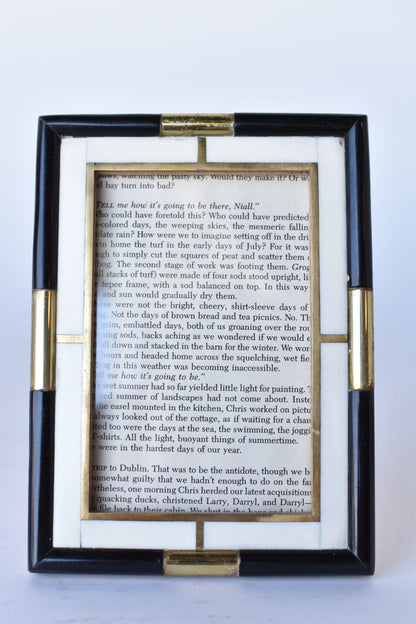 watching the pasty sky. Would they make it? Or w
d hay turn into bad?
"TELL me how it's going to be there, Niall."
ho could have foretold this? Who could have predicted
-colored days, the weeping skies, the mesmeric fallin
olate rain? How were we to imagine setting off in the dri
in home the turf in the early days of July? For it was
ugh to simply cut the squares of peat and scatter them
bog. The second stage of work was footing them. Grog
all stacks of turf) were made of four sods stood upright, li
tepee frame, with a sod balanced on top. In this way
and sun would gradually dry them.
ese were not the bright, cheery, shirt-sleeve days of
ng. Not the days of brown bread and tea picnics. No. Th
grim, embattled days, both of us groaning over the rou
ning sods, backs aching as we wondered if we would e
all down and stacked in the barn for the winter. We wor
hours and headed home across the squelching, wet fie
og in this weather was becoming inaccessible.
ll me how it's going to be."
wet summer had so far yielded little light for painting.
nd summer of landscapes had not come about. Inste
the easel mounted in the kitchen, Chris worked on pictu
always looked out of the cottage, as if waiting for a chan
ited too were the days at the sea, the swimming, the joggi
T-shirts. All the light, buoyant things of summertime.
were in the hardest days of our year.
TRIP to Dublin. That was to be the antidote, though we b
somewhat guilty that we hadn't enough to do on the fa
rtheless, one morning Chris herded our latest acquisitions
quacking ducks, christened Larry, Darryl, and Darryl—
file back to their cabin. We shut in the hens and